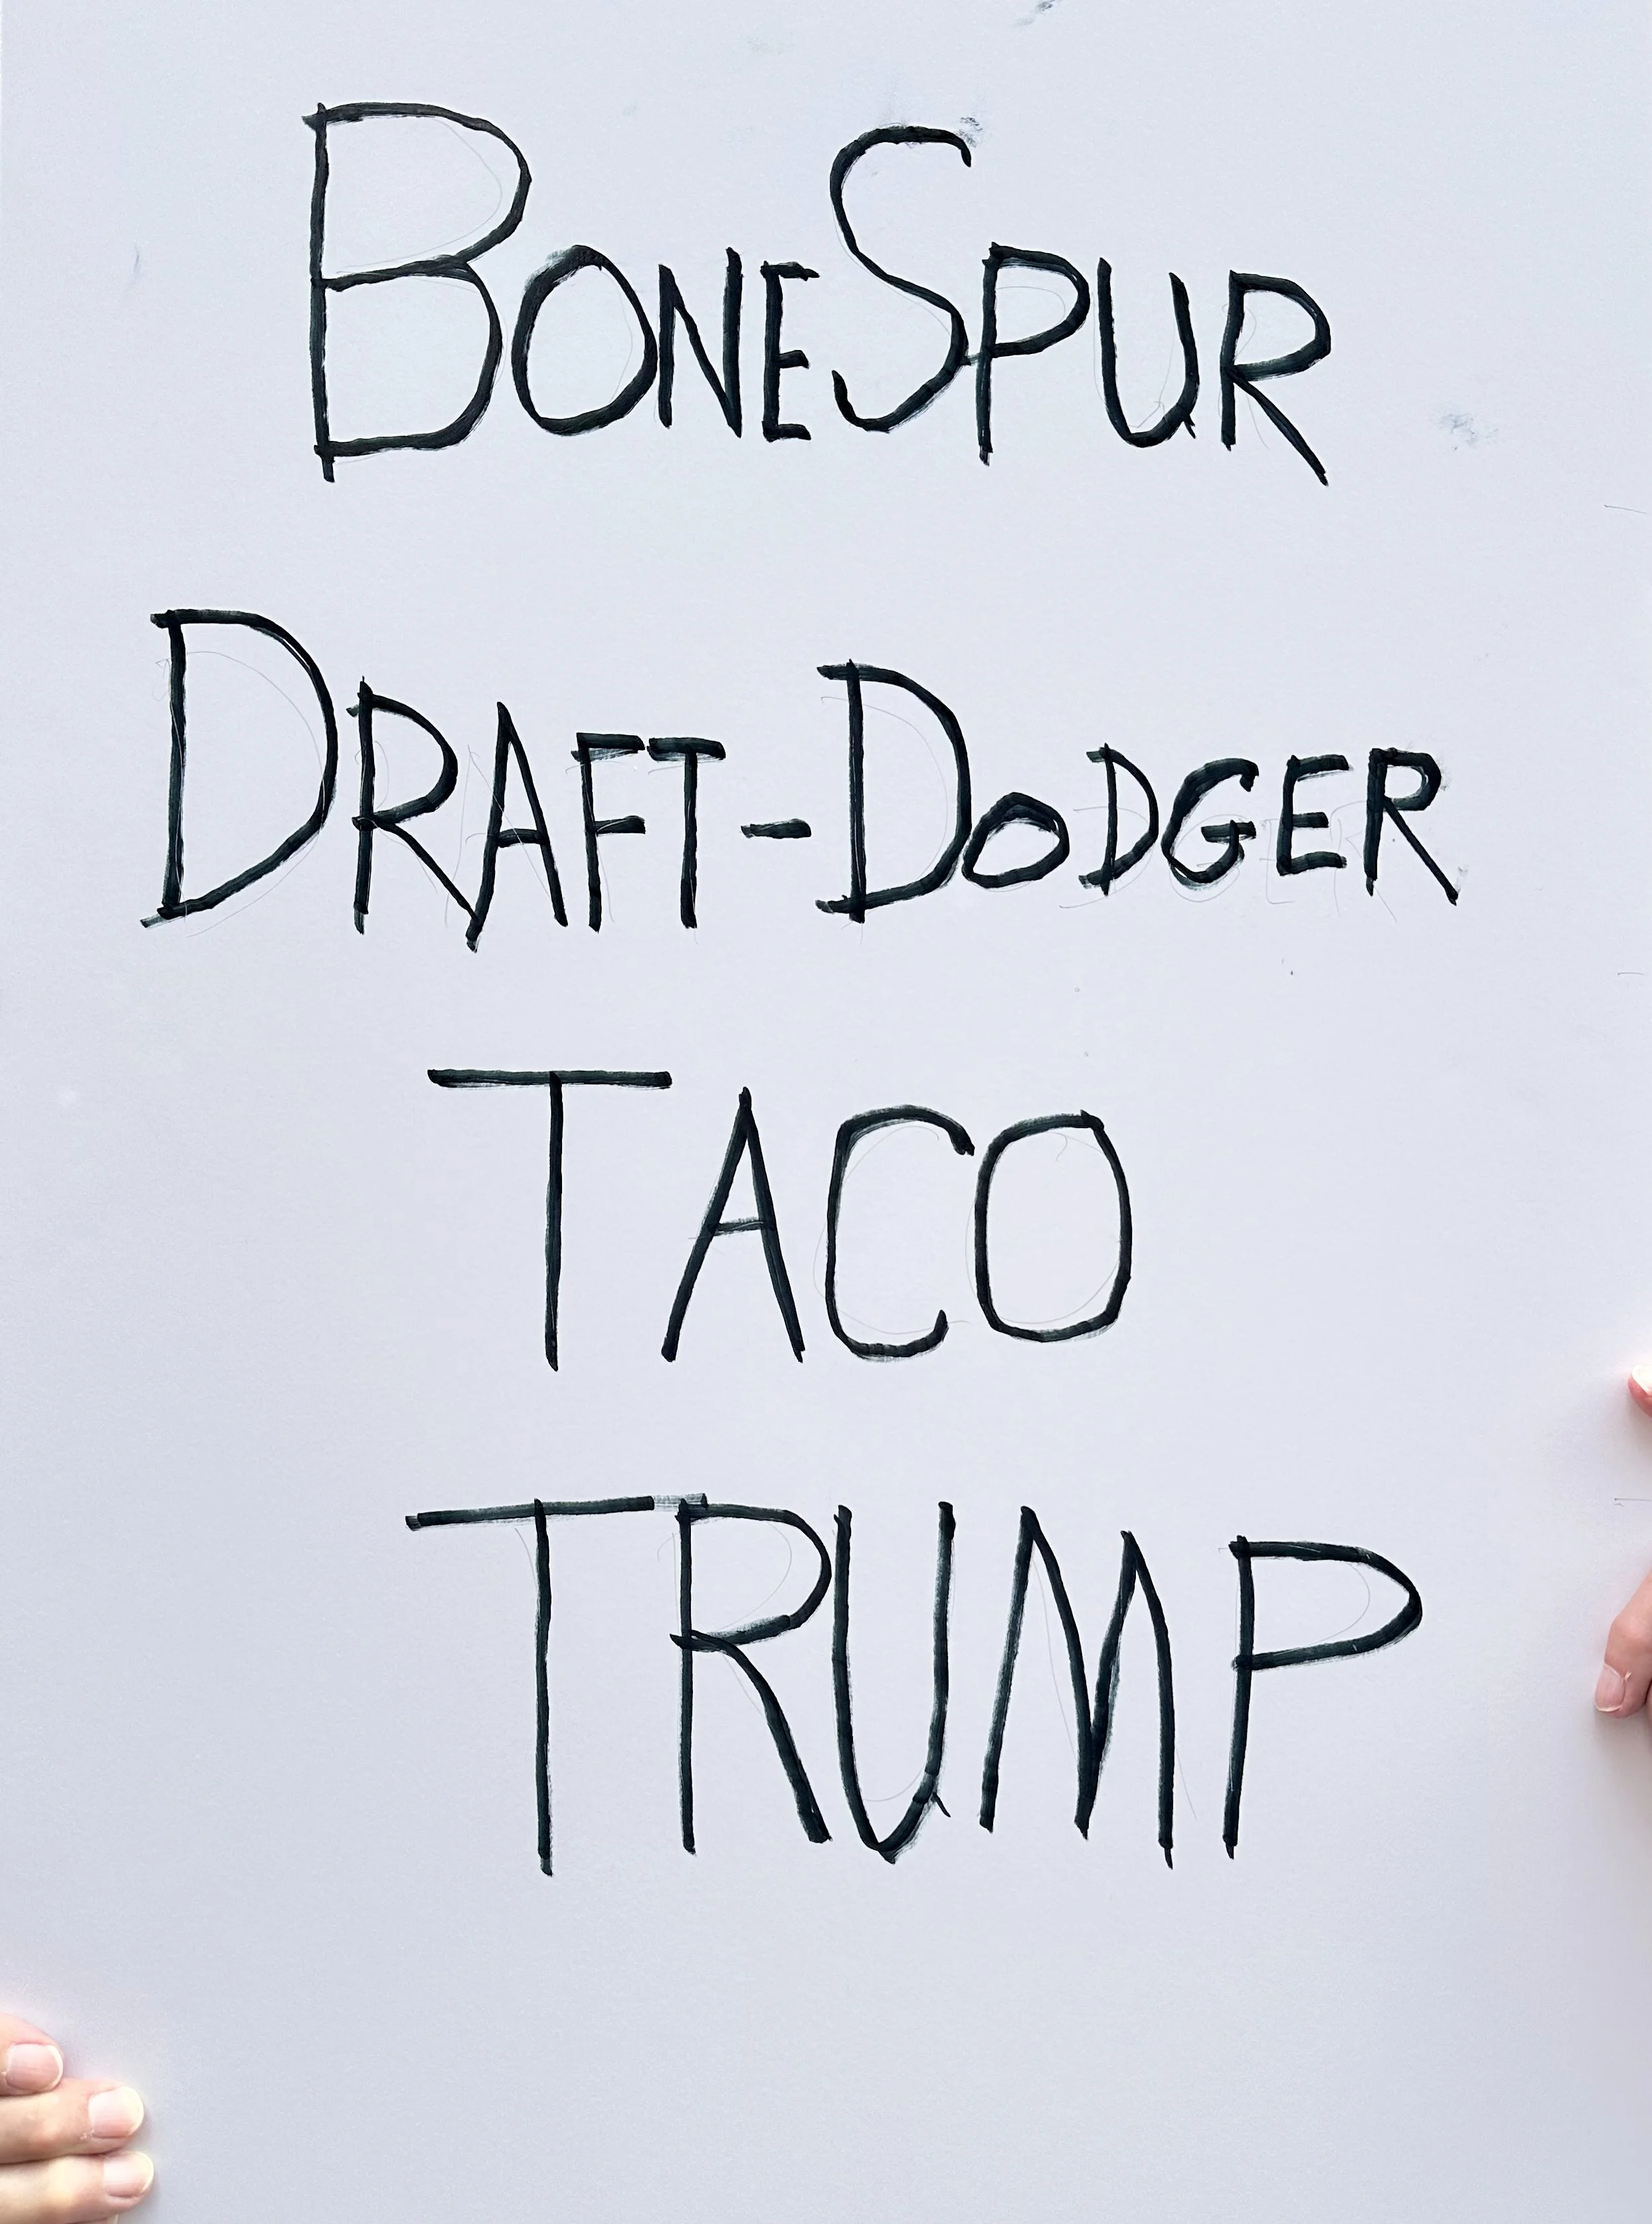 BONESPUR
DRAFT-DODGER
TACO
TRUMP